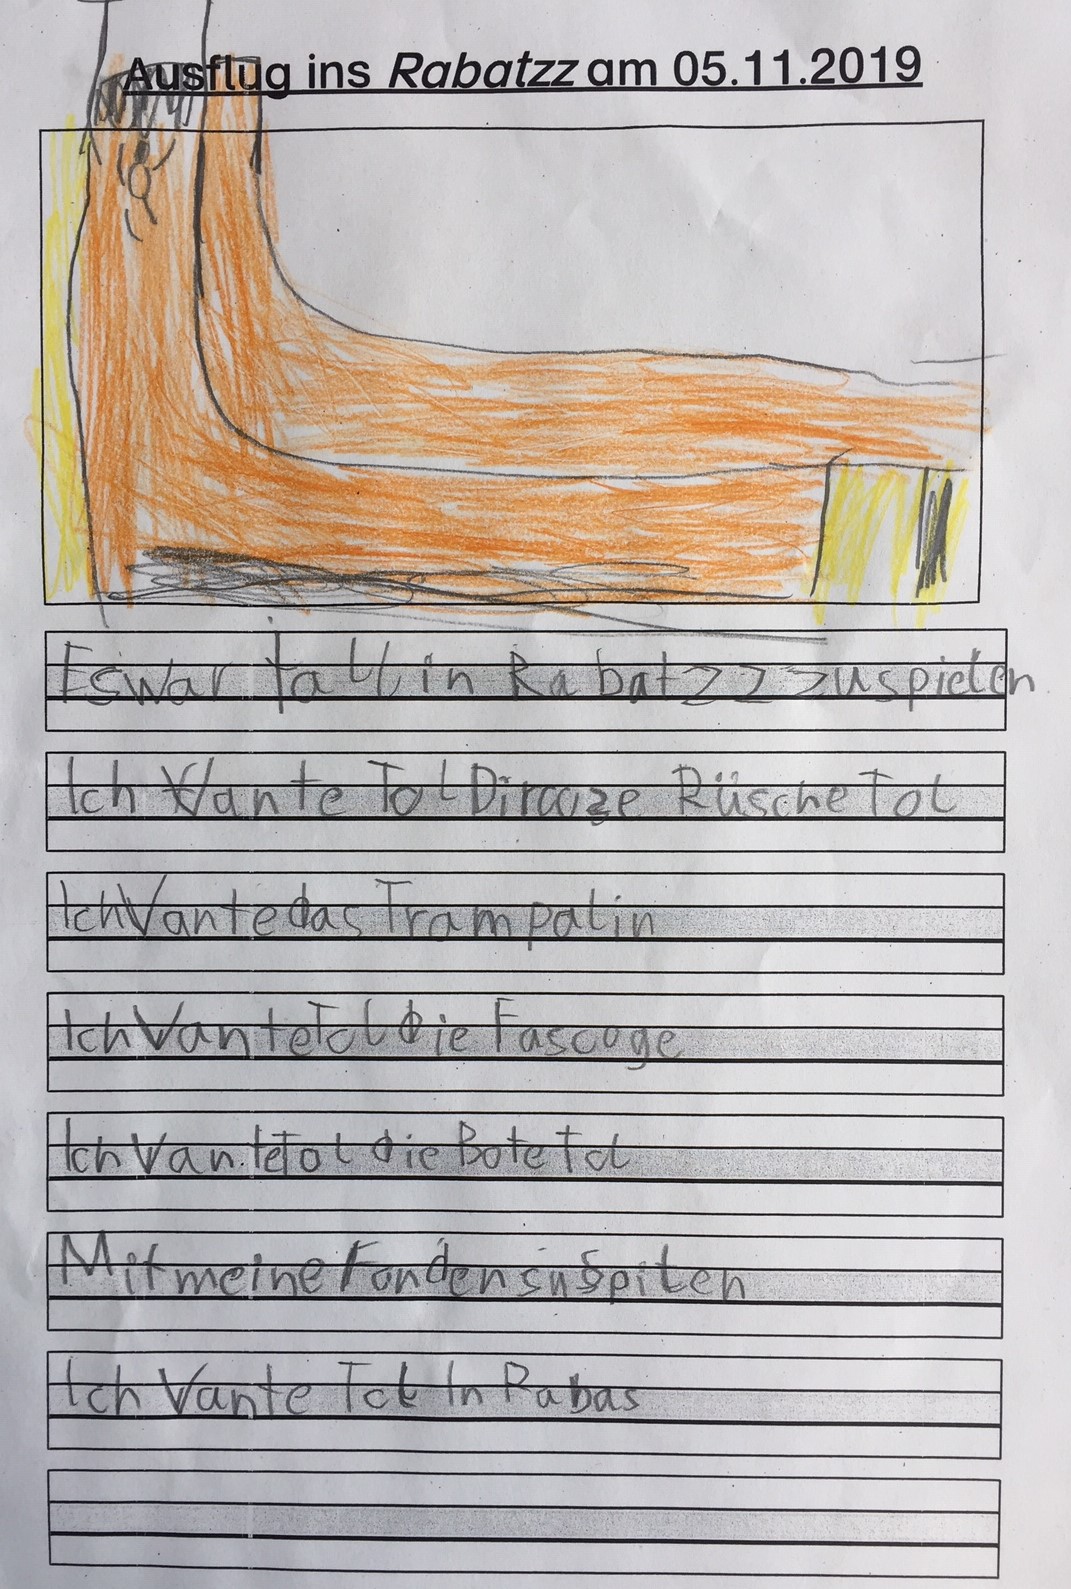 Ausflug ins Rabatzz am 05.11.2019
Es war tall in Rabatzz zuspielen
Ich Vante Tol Dirooze Rüsche Tol
Ich Vante das Trampalin
Ich Vante Tol die Fascoge
Ich Vante Tol die Bote Tol
Mit meine Fonden sn Spilen
Ich Vante Tol In Rabas